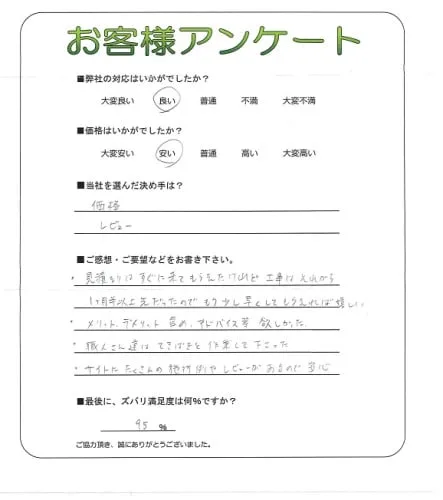 お客様アンケート
■弊社の対応はいかがでしたか?
大変良い 良い 普通 不満 大変不満
■価格はいかがでしたか?
大変安い 安い 普通 高い 大変高い
■当社を選んだ決め手は?
価格
レビュー
■ご感想・ご要望などをお書き下さい。
・見積もりはすぐに来てもらえたけれど 工事は それから
1ヶ月半以上先だったので もう少し早くしてもらえれば嬉しい
・メリット、デメリット 含め、アドバイス等 欲しかった
・職人さん達は てきぱきと 作業して下さった
・サイトに たくさんの 施行例や レビューがあるので 安心
■最後に、ズバリ満足度は何%ですか?
95 %
ご協力頂き、誠にありがとうございました。